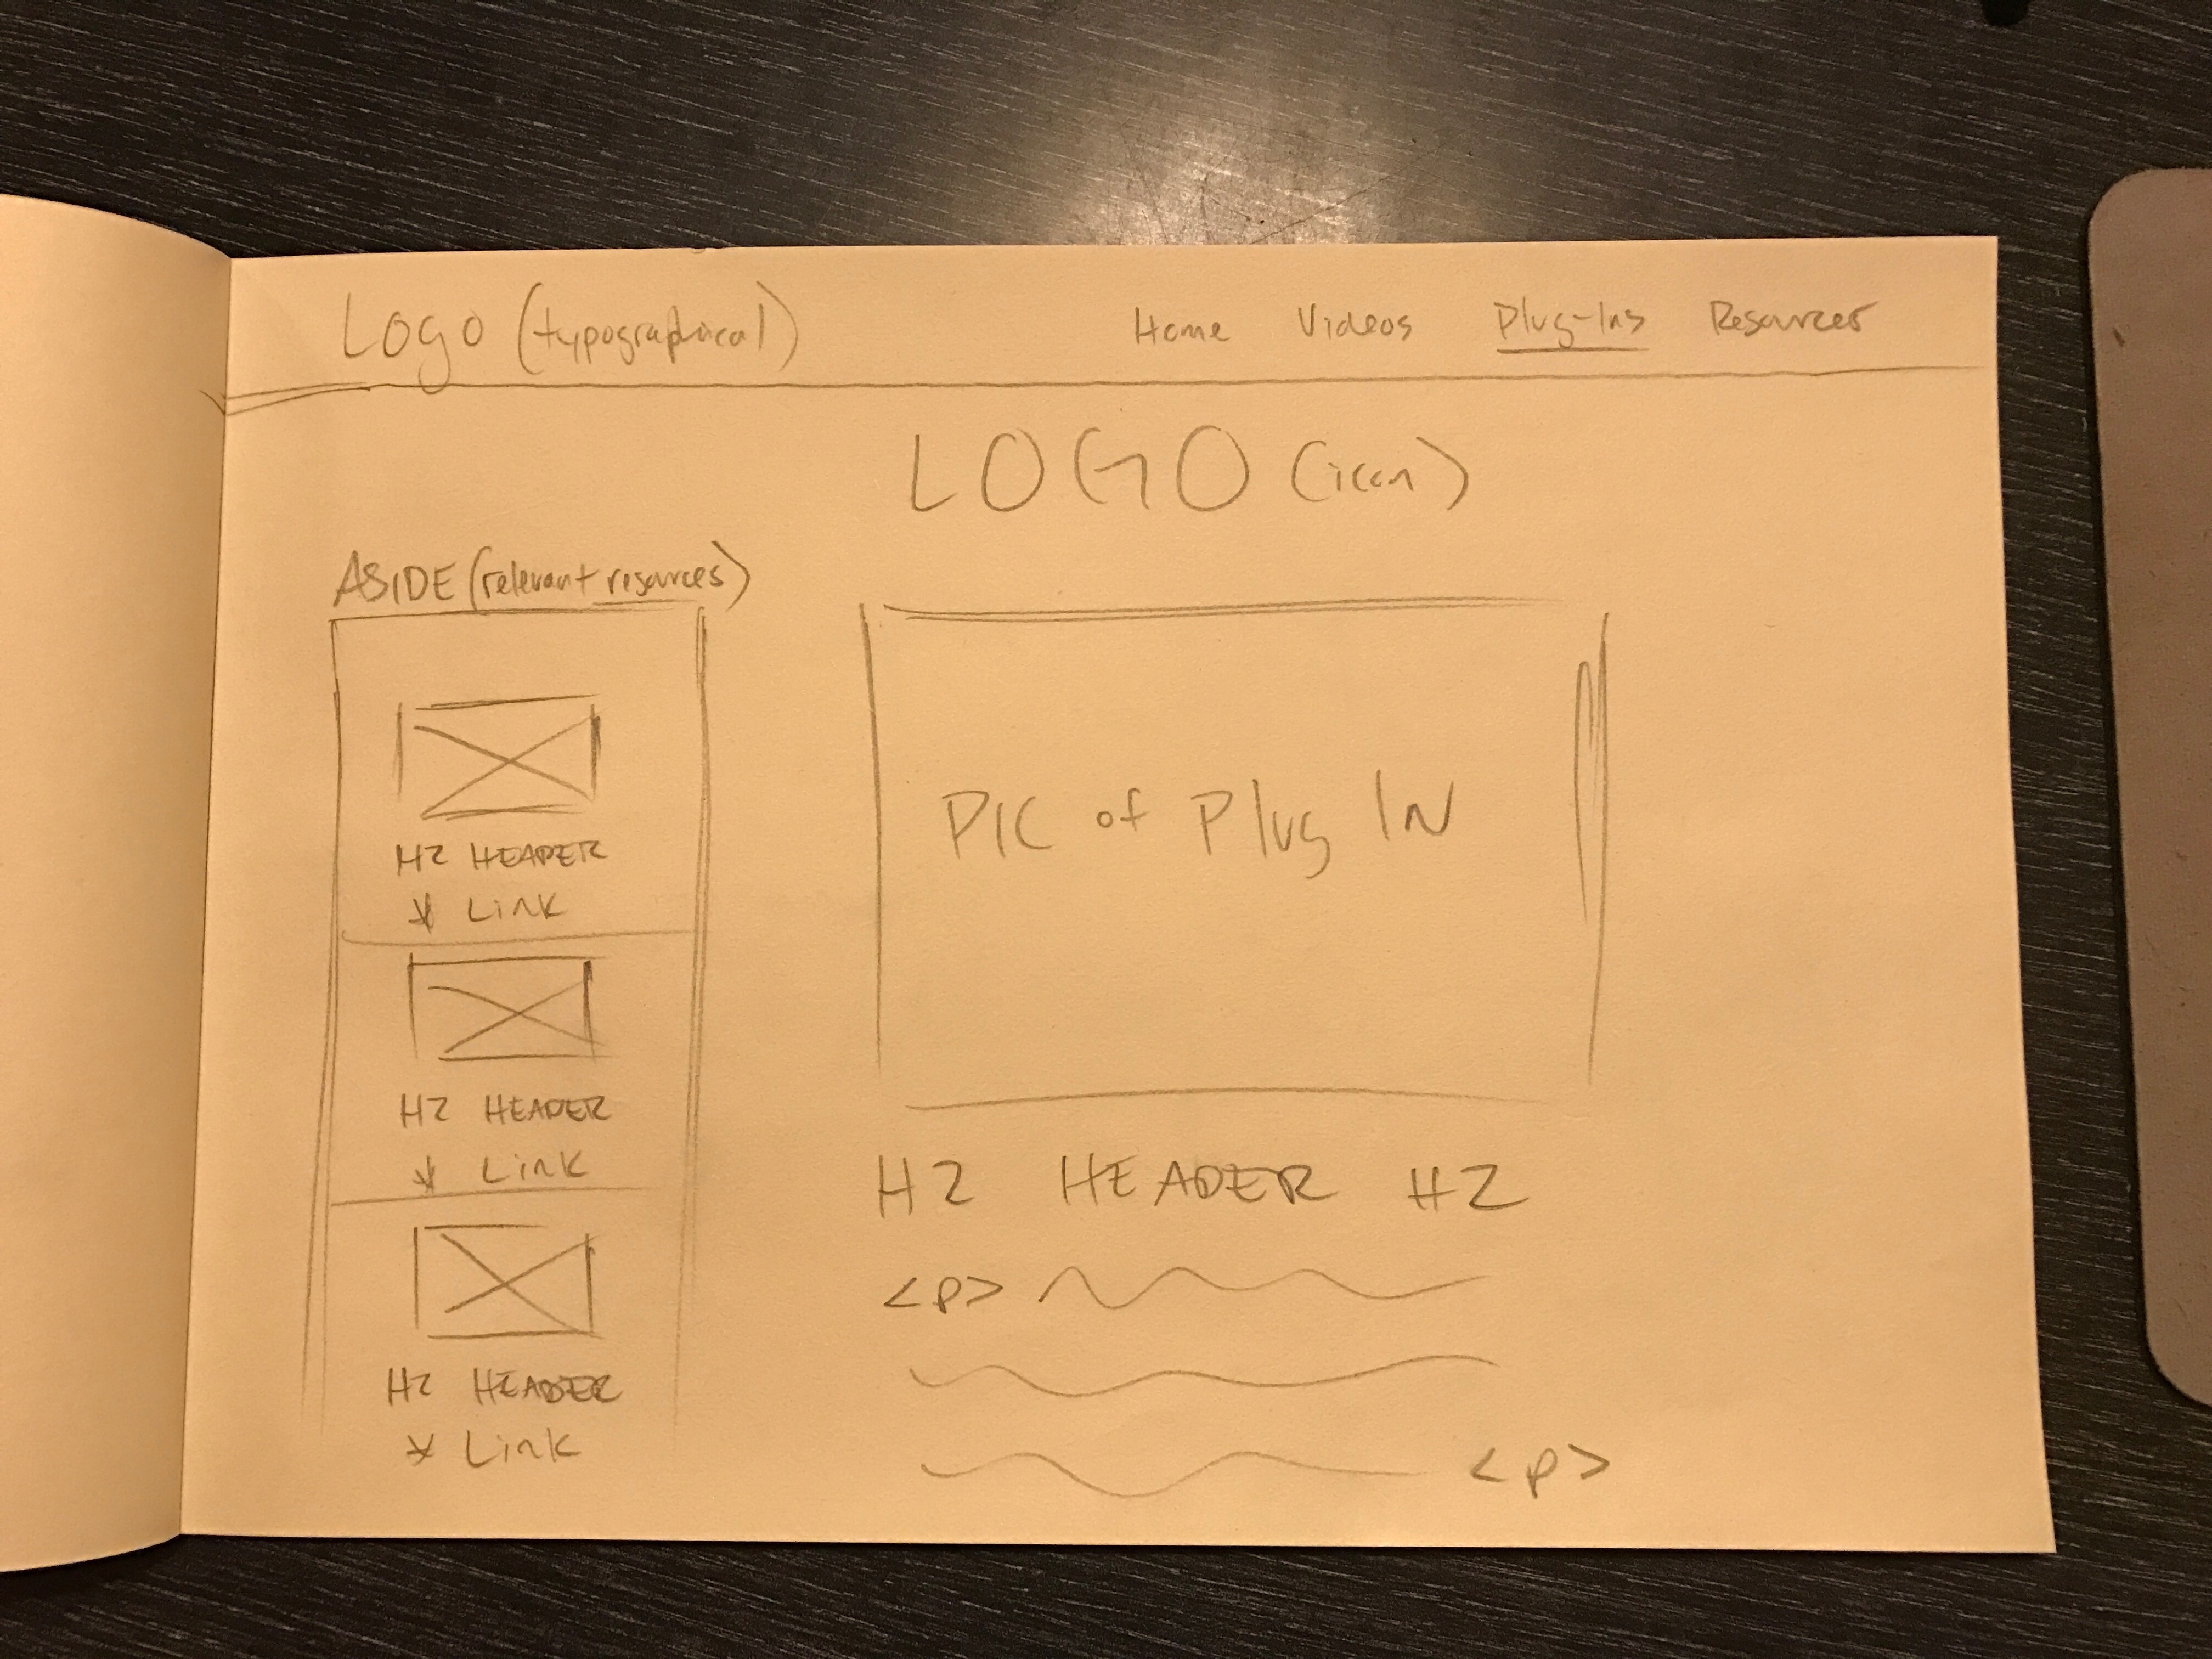 Logo (typographical) Home Videos Plug-Ins Resources
LOGO (icon)
ASIDE (relevant resources)
H2 HEADER
Link
H2 HEADER
Link
H2 HEADER
Link
PIC of Plug IN
H2 HEADER H2
<p>
<p>